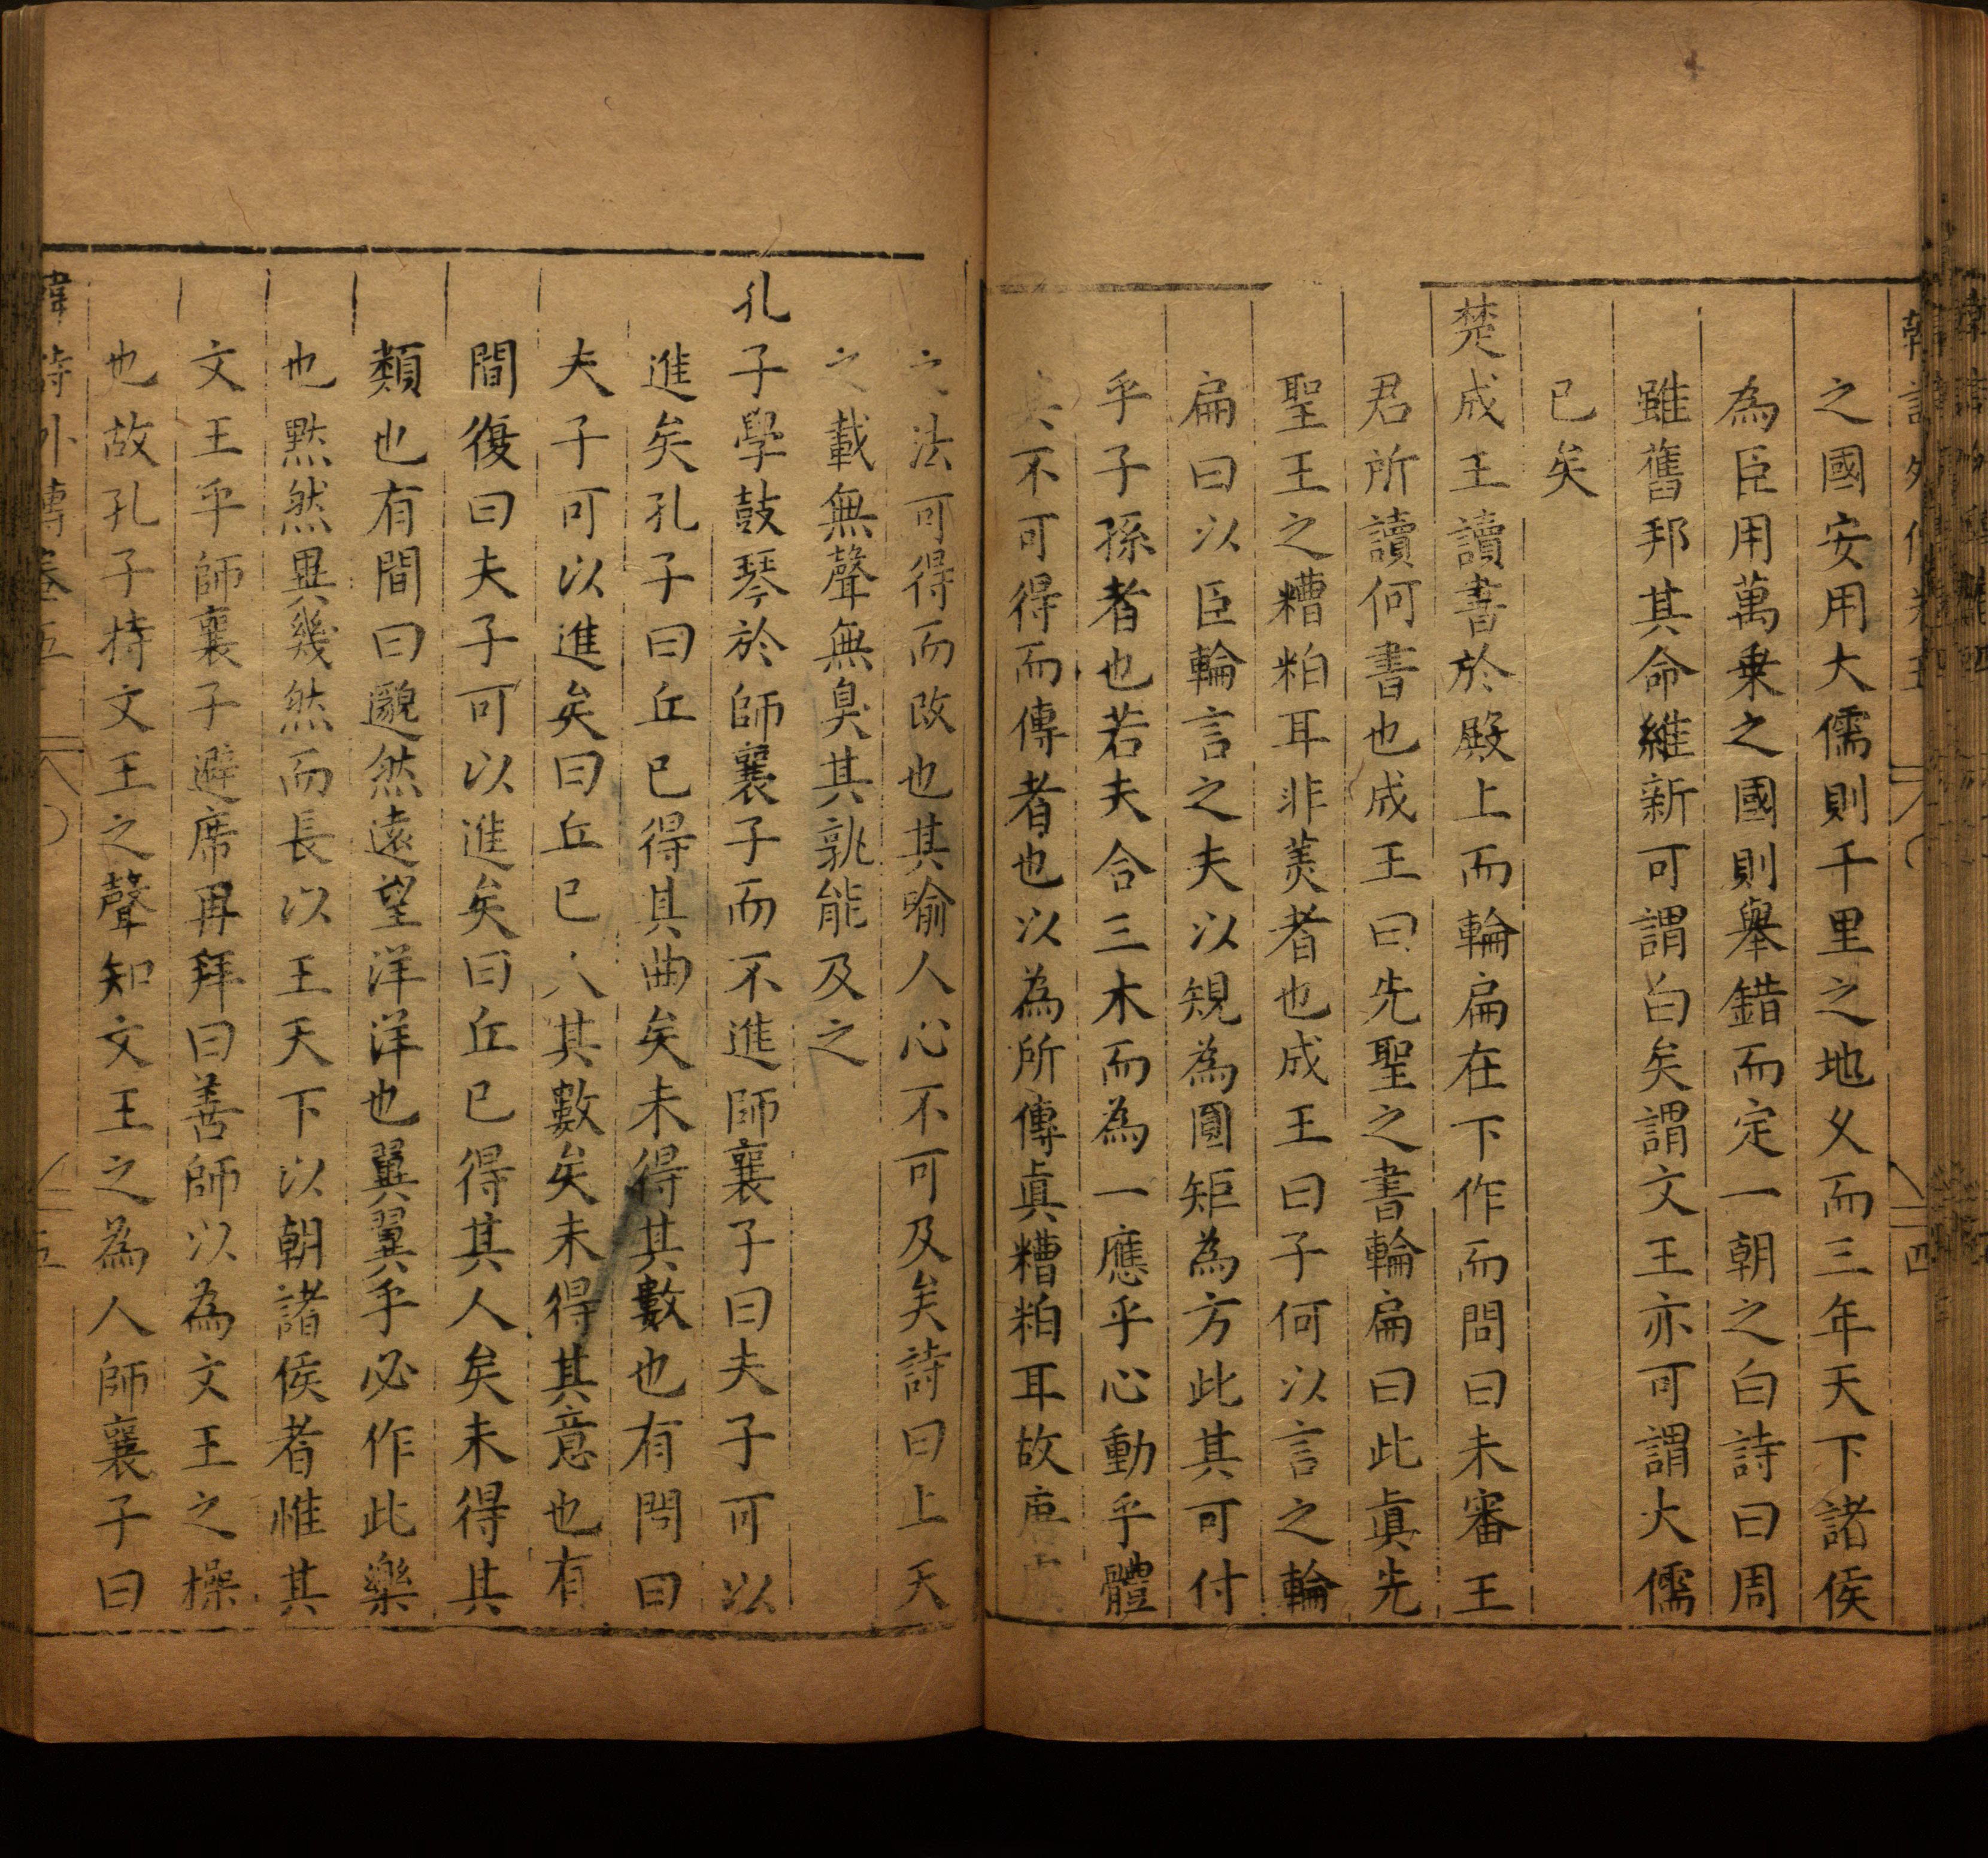 之國安用大儒則千里之地乂而三年天下諸侯
為臣用萬乗之國則舉錯而定一朝之白詩曰周
雖舊邦其命維新可謂白矣謂文王亦可謂大儒
已矣
楚成王讀書於殿上而輪扁在下作而問曰未審王
君所讀何書也成王曰先聖之書輪扁曰此眞先
聖王之糟粕耳非美者也成王曰子何以言之輪
扁曰以臣輪言之夫以規為圓矩為方此其可付
乎子孫者也若夫合三木而為一應乎心動乎體
其不可得而傳者也以為所傳眞糟粕耳故唐虞
之法可得而改也其喻人心不可及矣詩曰上天
之載無聲無臭其孰能及之
孔子學鼓琴於師襄子而不進師襄子曰夫子可以
進矣孔子曰丘已得其曲矣未得其數也有間曰
夫子可以進矣曰丘已得其數矣未得其意也有
間復曰夫子可以進矣曰丘已得其人矣未得其
類也有間曰邈然遠望洋洋也翼翼乎必作此樂
也黙然異幾然而長以王天下以朝諸侯者惟其
文王乎師襄子避席再拜曰善師以為文王之操
也故孔子持文王之聲知文王之為人師襄子曰
韓詩外傳卷五
五